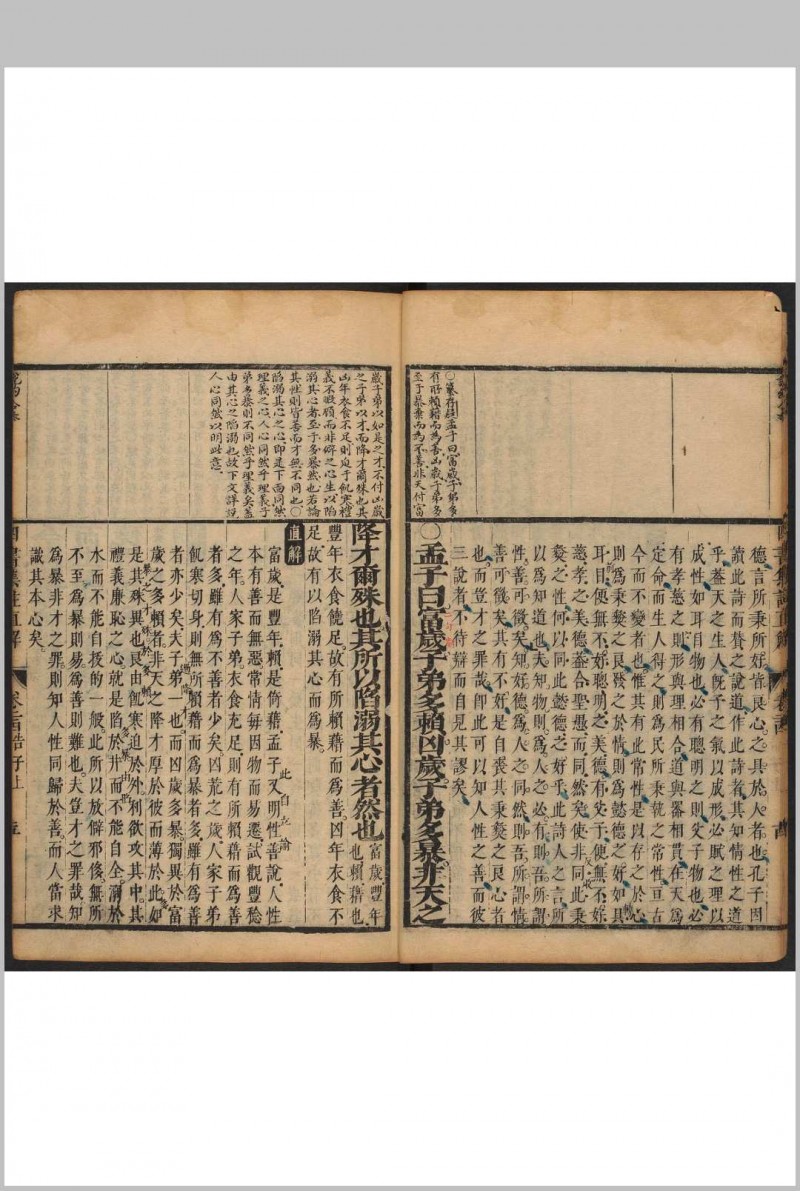 ○纂存疑孟子曰富歲子弟多
有所賴藉而為善凶歲子弟多
至于暴棄而為不善非天付富
德言所秉所好皆良心之具於人者也孔子因
讀此詩而贊之說道作此詩者其知情性之道
乎蓋天之生人既予之氣以成形必賦之理以
成性如耳目物也必有聰明之則父子物也必
有孝慈之則形與理相合道與器相貫在天為
定命而生人得之則為民所秉執之常性亘古
今而不變者也惟其有此常性是以存之於心
則為秉彝之良發之於情則為懿德之好如具
耳目便無不好聰明之美德有父子便無不好
慈孝之美德蓋合聖愚而同然矣使非同此秉
彝之性何以同此懿德之好乎此詩人之言所
以為知道也夫知物則為人之必有則吾所謂
性善可徵矣知好德為人之同然則吾所謂情
善可徵矣其有不好是自喪其秉彝之良者
也而豈才之罪哉即此可以知人性之善而彼
三說者不待辯而自見其謬矣
○孟子曰富歲子弟多賴凶歲子弟多暴非天之
歲子弟以如是之才不付凶歲
之子弟以才而降才爾殊也其
凶年衣食不足則迫于飢寒禮
義不暇顧而非僻之心生以陷
溺其心者至于多暴然也若論
其性則皆善而才無不同也○
陷溺其心之心即是下面同然
理義之心人心同然乎理義子
弟多暴則不同然乎理義矣蓋
由其心之陷溺也故下文詳說
人心同然以明此意
降才爾殊也其所以陷溺其心者然也
富歲豐年
也賴藉也
豐年衣食饒足故有所賴藉而為善凶年衣食不
足故有以陷溺其心而為暴
直解
富歲是豐年賴是倚藉孟子又明性善說人性
此自立論
本有善而無惡常情每因物而易遷試觀豐稔
之年人家子弟衣食充足則有所賴藉而為善
者多雖有為不善者少矣凶荒之歲人家子弟
飢寒切身則無所賴藉而為暴者多雖有為善
者亦少矣夫子弟一也而凶歲多暴獨異於富
歲之多賴者非天之降才厚於彼而薄於此如
是其殊異也良由飢寒迫於外利欲攻其中其
禮義廉恥之心就是陷於井而不能自全溺於
水而不能自援的一般此所以放僻邪侈無所
不至為暴則易為善則難也夫豈才之罪哉知
為暴非才之罪則知人性同歸於善而人當求
識其本心矣